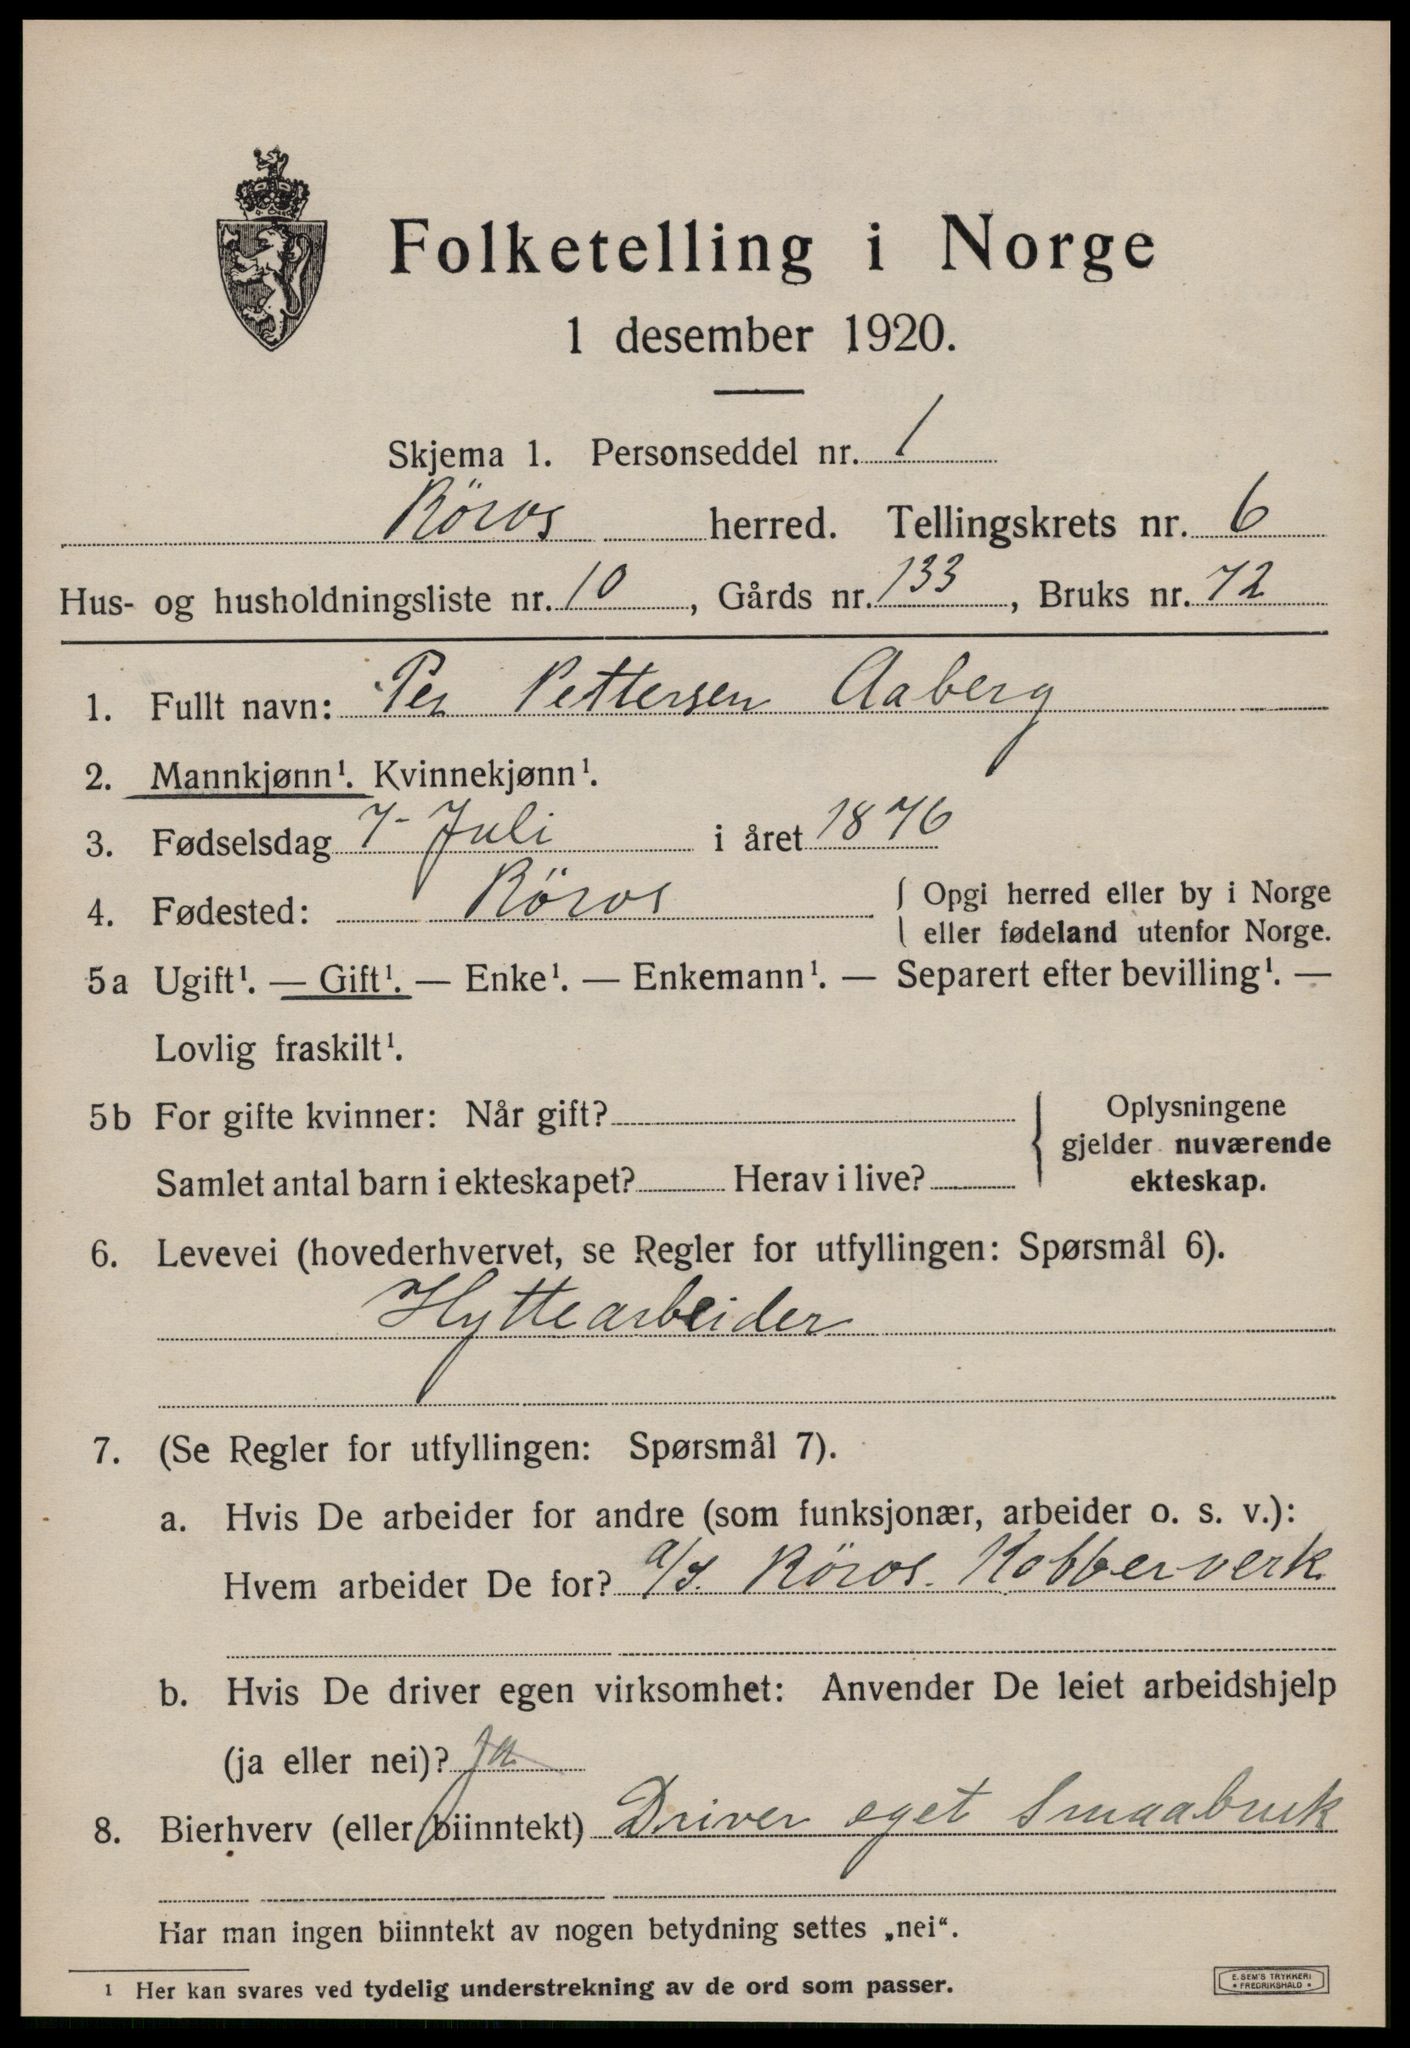 Folketelling i Norge
1 desember 1920.
Skjema 1. Personseddel nr. 1
Röros herred. Tellingskrets nr. 6
Hus- og husholdningsliste nr. 10, Gårds nr. 133, Bruks nr. 72
1. Fullt navn: Per Pettersen Aaberg
2. Mannkjønn¹. Kvinnekjønn¹.
3. Fødselsdag 7- Juli i året 1876
4. Fødested: Röros { Opgi herred eller by i Norge
eller fødeland utenfor Norge.
5a Ugift¹. — Gift¹. — Enke¹. — Enkemann¹. — Separert efter bevilling¹. —
Lovlig fraskilt¹.
5b For gifte kvinner: Når gift? { Oplysningene
gjelder nuværende
Samlet antal barn i ekteskapet? Herav i live? ekteskap.
6. Levevei (hovederhvervet, se Regler for utfyllingen: Spørsmål 6).
Hyttearbeider
7. (Se Regler for utfyllingen: Spørsmål 7).
a. Hvis De arbeider for andre (som funksjonær, arbeider o. s. v.):
Hvem arbeider De for? a/s. Röros. Kobberverk
b. Hvis De driver egen virksomhet: Anvender De leiet arbeidshjelp
(ja eller nei)? ja
8. Bierhverv (eller biinntekt) Driver eget Smaabruk
Har man ingen biinntekt av nogen betydning settes „nei“.
¹ Her kan svares ved tydelig understrekning av de ord som passer.
E. SEM'S TRYKKERI
* FREDRIKSHALD *